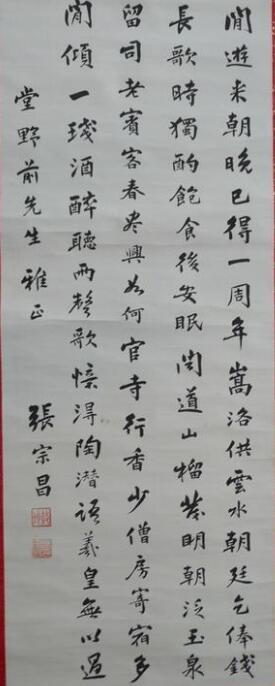 閒遊来朝晚已得一周年嵩洛供雲水朝廷乞俸錢
長歌時獨酌飽食後安眠聞道山榴發明朝泛玉泉
留司老賓客春尽興如何官寺行香少僧房寄宿多
閒傾一琖酒醉聽両聲歌憶得陶潛語羲皇無以過
堂野前先生雅正
張宗昌